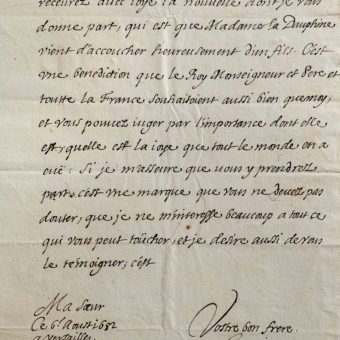 recevrez avec ioye la nouvelle dont je vous
donne part, qui est que Madame la Dauphine
vient d'accoucher heureusement d'un fils. C'est
une benediction que le Roy Monseigneur et Pere et
toutte la France souhaitoient aussi bien que moy,
et vous pouvez iuger par l'importance dont elle
est, quelle est la ioye que tout le monde en a
eüe: Si je m'asseure que vous y prendrez
part, c'est une marque que vous ne devez pas
douter, que je ne m'interesse beaucoup a tout ce
qui vous peut toucher, et je desire aussi de vous
le temoigner; c'est
Ma Sœur
Ce 6e Aoust 1682
a versailles
Vostre bon frere.